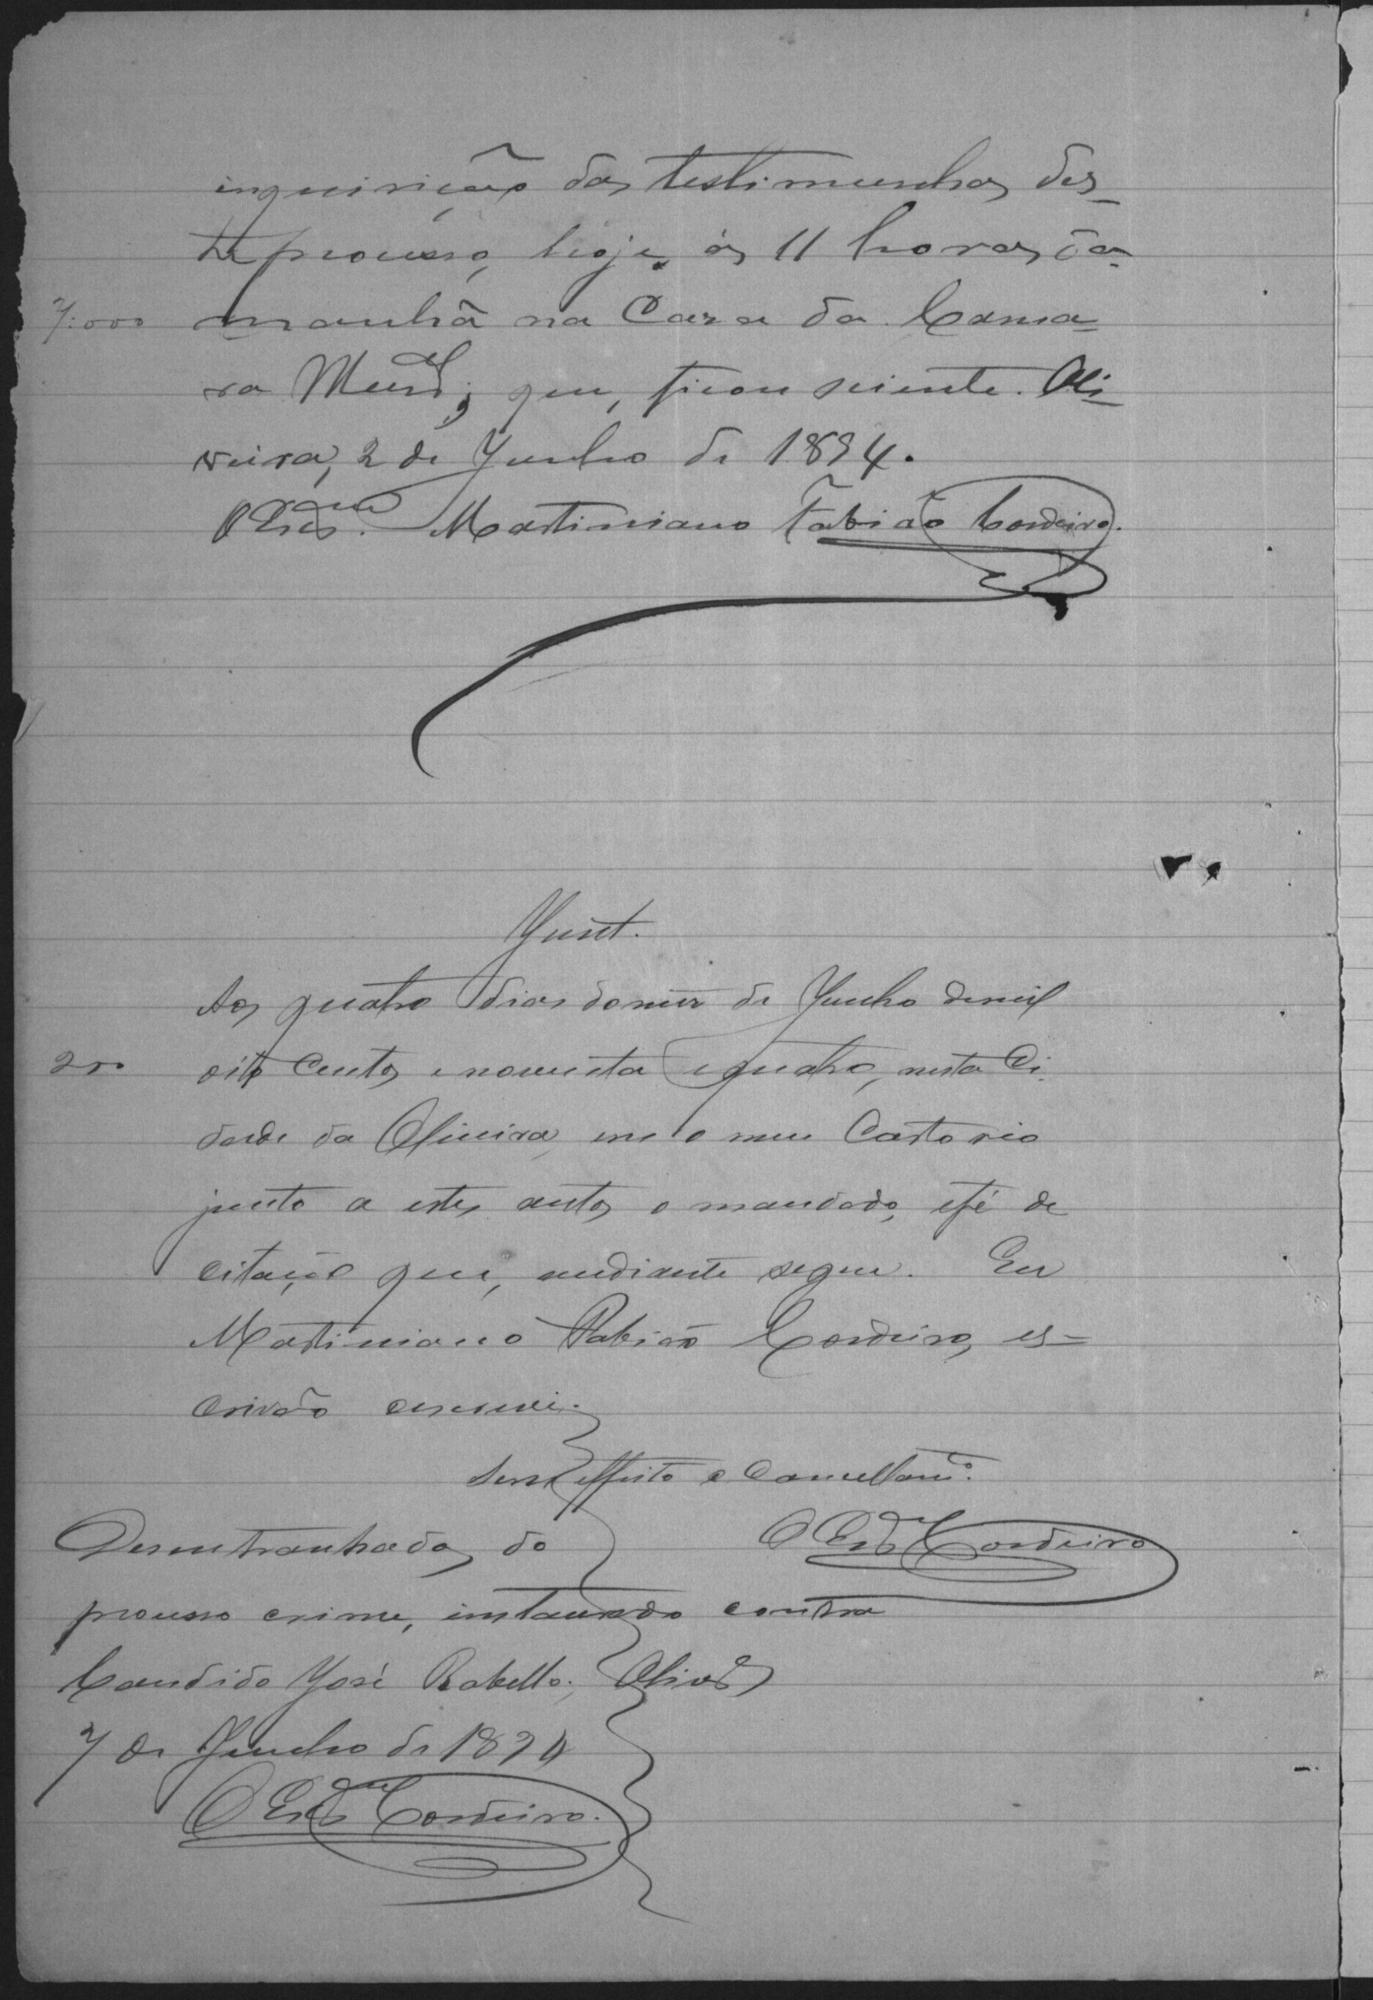 inquirição das testimunhas des-
te processo, hoje, ás 11 horas da
7:000 manhã na Casa da Cama-
ra Munal; que, ficou sciente. Oli-
veira, 2 de Junho de 1894.
O Escram. Martiniano Fabião Cordeiro.
Junt.
Aos quatro dias do mez de Junho de mil
200 oito centos e noventa e quatro, nesta Ci-
dade da Oliveira, em o meu Cartorio
junto a estes autos o mandado, e fé de
citação que, mediante segue. Eu
Martiniano Fabião Cordeiro, es-
crivão escrevi.
Sem effeito e Cancellamo.
O Escram Cordeiro
Desentranhados do
processo crime, instaurado contra
Candido José Rabello. Olivra
7 de Junho de 1894
O Escram Cordeiro.